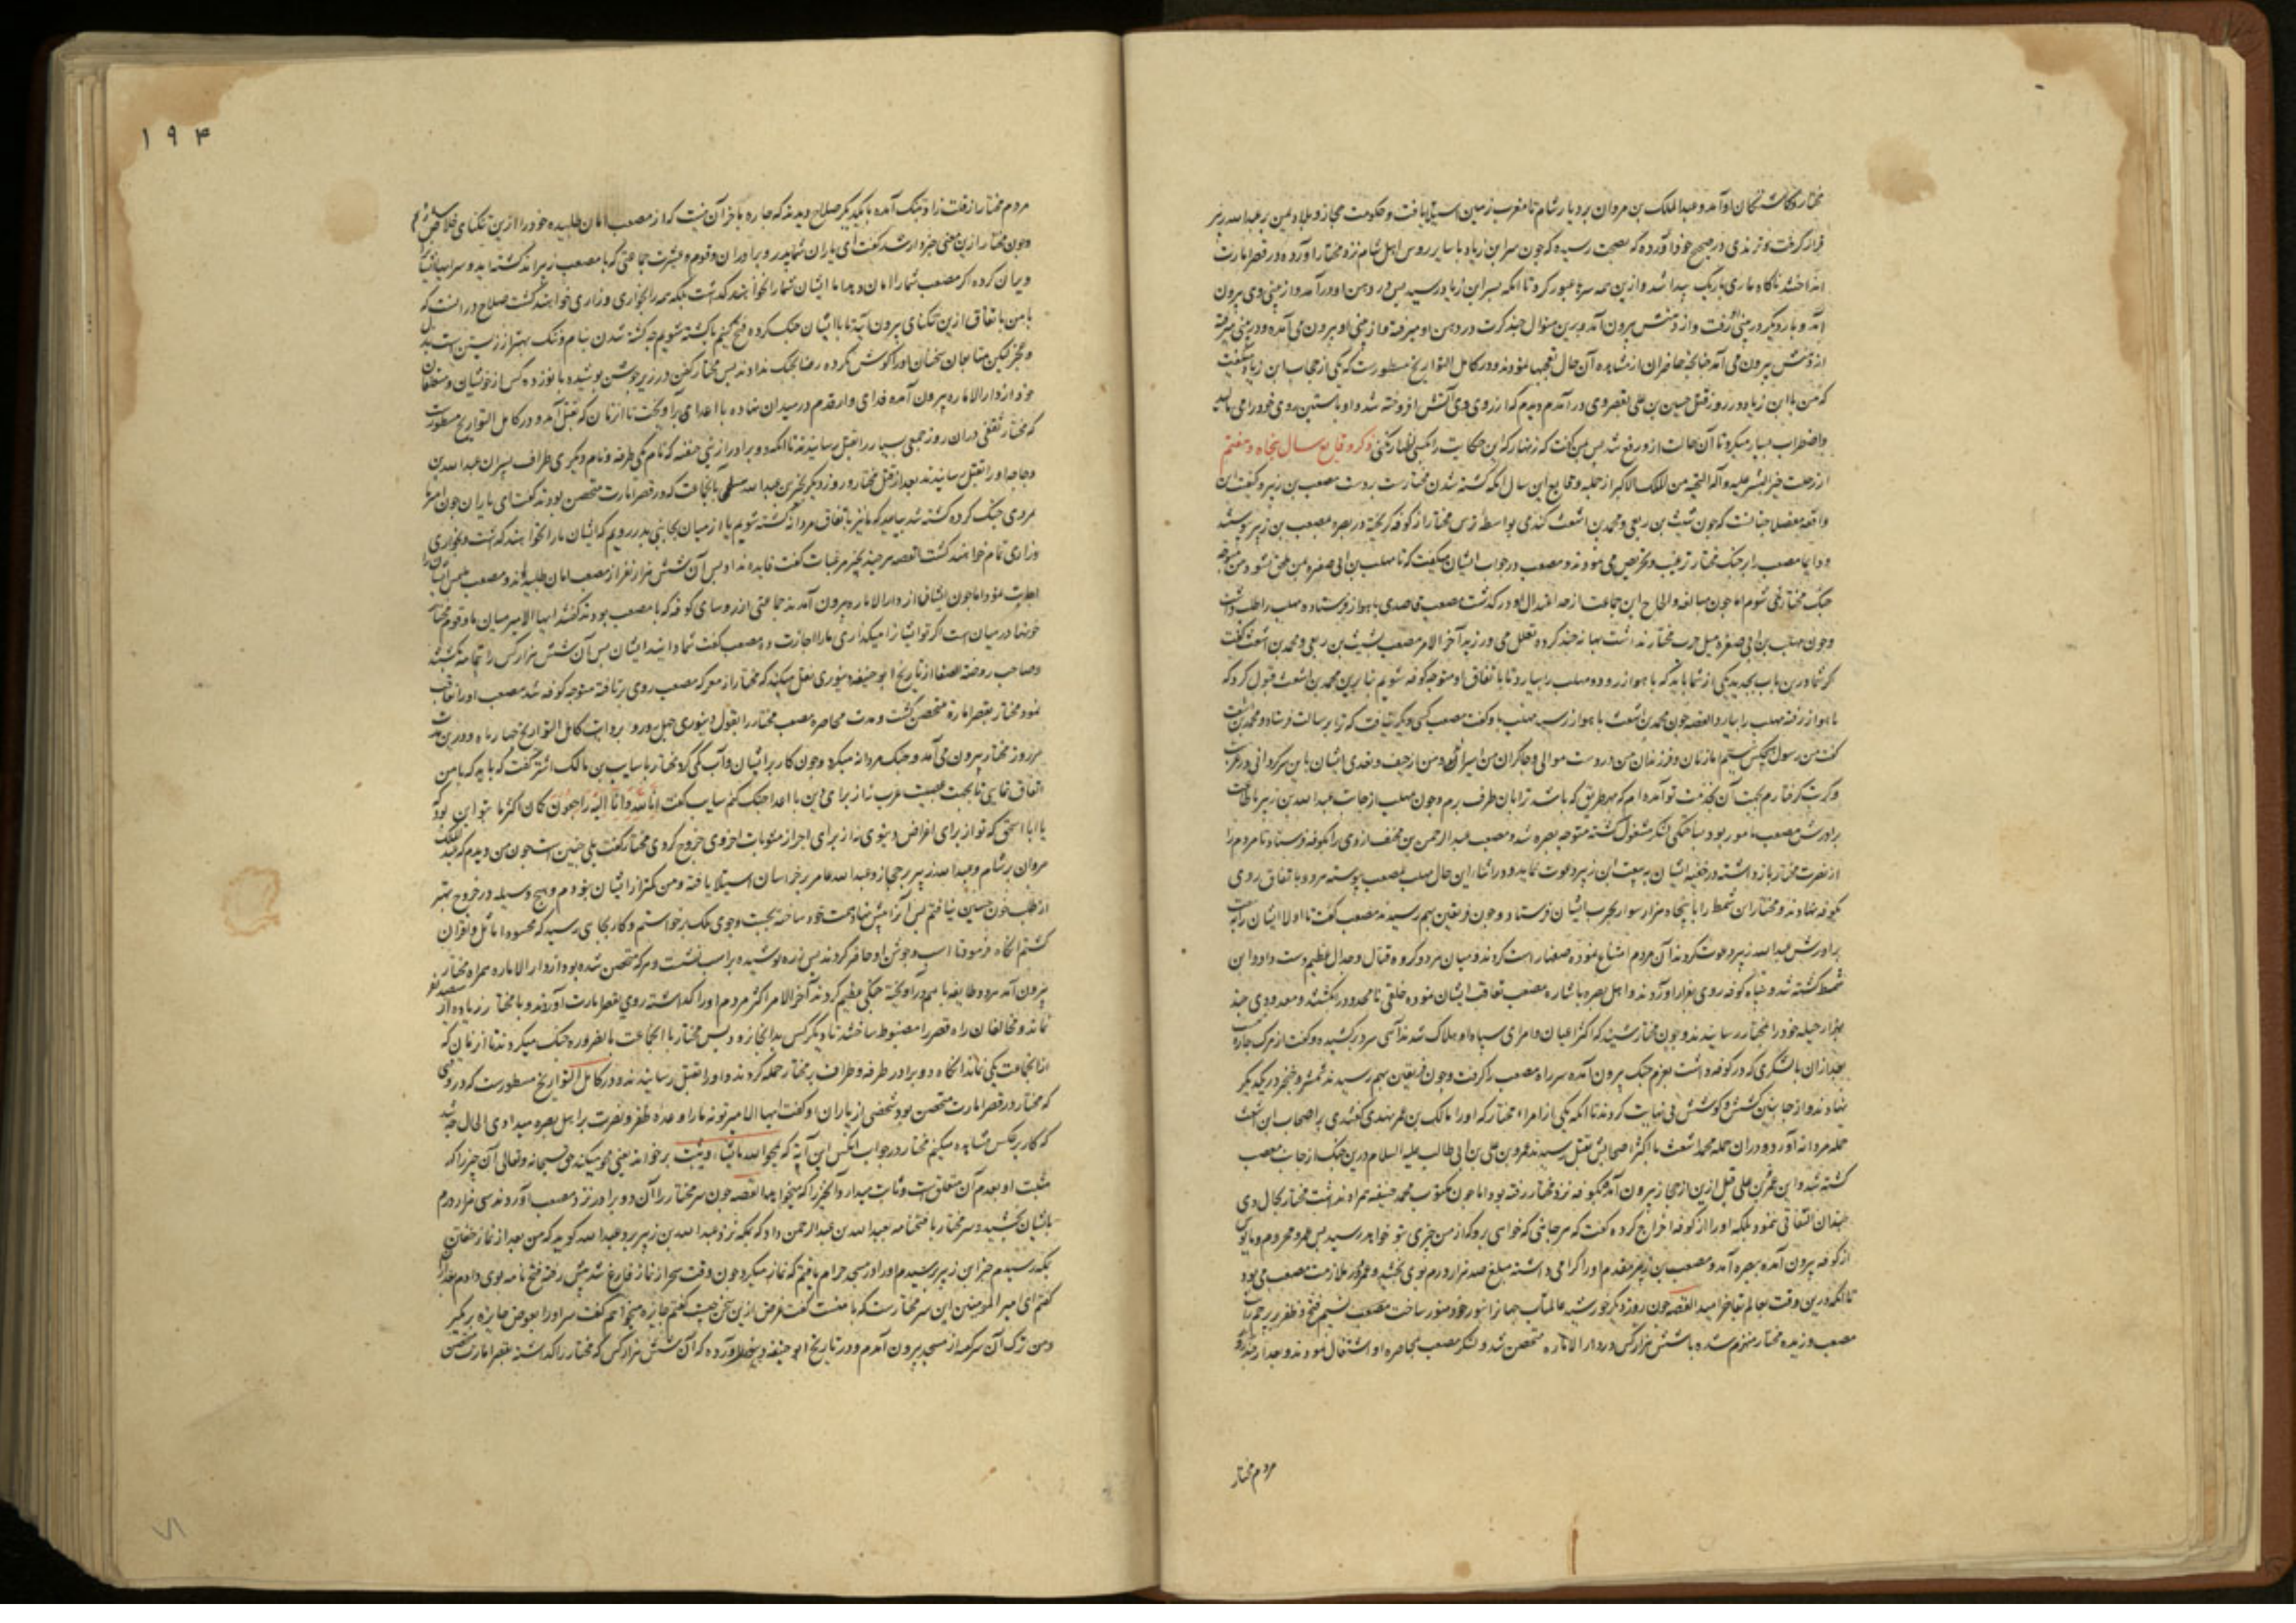 مختار و گماشتگان او آمد و عبدالملک بن مروان بر دیار شام تا مغرب زمین استیلا یافت و حکومت حجاز و بلاد یمن بر عبدالله زبیر
قرار گرفت و ترمذی در صحیح خود آورده که بصحت رسیده که چون سر ابن زیاد با سایر رؤس اهل شام نزد مختار آورده در قصر امارت
انداختند ناگاه ماری باریک پیدا شد و از بین همه سرها عبور کرد تا آنکه بسر ابن زیاد رسید پس در دهن او درآمد و از بینی وی بیرون
آمد و بار دیگر در بینی رفت و از دهنش بیرون آمد و برین منوال چند کرت در دهن او میرفت و از بینی او بیرون می آمد و در بینی میرفت
از دهنش بیرون می آمد چنانچه حاضران از مشاهده آن حال تعجبها نمودند و در کامل التواریخ مسطورست که یکی از حجاب ابن زیاد گفت
که من با ابن زیاد در روز قتل حسین بن علی بقصر وی درآمدم دیدم که از روی وی آتش افروخته شد و او باستین روی خود را می مالید
و اضطراب بسیار میکرد تا آن حالت ازو رفع شد پس بمن گفت که زنهار که این حکایت را بکسی اظهار نکنی ذکر وقایع سال پنجاه و هفتم
از رحلت خیر البشر علیه و آله التحیة من الملک الاکبر از جمله وقایع این سال آنکه کشته شدن مختارست بر دست مصعب بن زبیر و کیفیت این
واقعه مفصلا چنانست که چون شبث بن ربعی و محمد بن اشعث کندی بواسطه ترس مختار از کوفه گریخته در بصره بمصعب بن زبیر پیوستند
و دایما مصعب را بر جنگ مختار ترغیب و تحریص می نمودند و مصعب در جواب ایشان میگفت که تا مهلب بن ابی صفره بمن ملحق نشود من متوجه
جنگ مختار نمی شوم اما چون مبالغه و الحاح این جماعت از حد اعتدال در گذشت مصعب قاصدی باهواز فرستاده مهلب را طلب داشت
و چون مهلب بن ابی صفره میل حرب مختار نداشت بهانه چند کرده تعلل می ورزید آخر الامر مصعب بشبث بن ربعی و محمد بن اشعث گفت
که شما درین باب بجدید یکی از شما باید که باهواز رود و مهلب را بیارد تا باتفاق او متوجه کوفه شویم بنابرین محمد بن اشعث قبول کرد که
باهواز رفته مهلب را بیارد القصه چون محمد بن اشعث باهواز رسید مهلب باو گفت مصعب کسی دیگر نیافت که ترا برسالت فرستاد محمد بن اشعث
گفت من رسول هیچکس نیستم اما زنان و فرزندان من در دست موالی و چاکران من اسیر
و کربت گرفتارم بجهت آن بخدمت تو آمده ام که بهر طریق که باشد ترا بآن طرف برم و چون مهلب از جانب عبدالله بن زبیر باطاعت
برادرش مصعب مامور بود بساختگی لشکر مشغول گشته متوجه بصره شد و مصعب عبدالرحمن بن مخنف ازدی را بکوفه فرستاد تا مردم را
از نصرت مختار باز داشته در خفیه ایشان به بیعت ابن زبیر دعوت نماید و در اثنای این حال مهلب بمصعب پیوسته هر دو باتفاق روی
بکوفه نهادند و مختار ابن شمیط را با پنجاه هزار سوار بحرب ایشان فرستاد و چون فریقین بهم رسیدند مصعب گفت تا اولا ایشان را به بیعت
برادرش عبدالله زبیر دعوت کردند آن مردم امتناع نموده صفها راست کردند و میان هر دو گروه قتال و جدال عظیم دست داد و ابن
شمیط کشته شد و سپاه کوفه روی بفرار آوردند و اهل بصره باشاره مصعب تعاقب ایشان نموده خلقی نامحدود را بکشتند و معدودی چند
بهزار حیله خود را بمختار رسانیدند و چون مختار شنید که اکثر اعیان و امرای سپاه او هلاک شدند آهی سرد برکشیده و گفت از مرگ چاره نیست
بعد از آن با لشکری که در کوفه داشت بعزم جنگ بیرون آمده سر راه مصعب را گرفت و چون فریقین بهم رسیدند شمشیر و خنجر در یکدیگر
نهادند و از جانبین کشش و کوشش بی نهایت کردند تا آنکه یکی از امراء مختار که او را مالک بن عمر نهدی گفتندی بر اصحاب ابن اشعث
حمله مردانه آورد و در آن حمله محمد اشعث با اکثر اصحابش بقتل رسیدند و عمر بن علی بن ابی طالب علیه السلام درین جنگ از جانب مصعب
کشته شد و این عمر بن علی قبل ازین از حجاز بیرون آمده بکوفه نزد مختار رفته بود اما چون مکتوب محمد حنفیه همراه نداشت مختار بحال وی
چندان التفاتی ننمود بلکه او را از کوفه اخراج کرده گفت که هر جائی که خواهی برو که از من چیزی بتو نخواهد رسید پس عمر و محروم و مایوس
از کوفه بیرون آمده ببصره آمد و مصعب بن زبیر مقدم او را گرامی داشته مبلغ صد هزار درم بوی بخشید و عمر در ملازمت مصعب می بود
تا آنکه درین وقت بعالم بقا خرامید القصه چون روز دیگر خورشید عالمتاب جهان را بنور خود منور ساخت نسیم فتح و ظفر بر پرچم رایت
مصعب وزیده مختار منهزم شده با شش هزار کس در دار الاماره متحصن شد و لشکر مصعب بمحاصره او اشتغال نمودند و بعد از چند روز
مردم مختار
۱۹۴
مردم مختار از قلت زاد بتنگ آمده با یکدیگر صلاح دیدند که چاره ما جز آن نیست که از مصعب امان طلبیده خود را ازین تنگنای خلاص سازیم
و چون مختار ازین معنی خبردار شد گفت ای یاران شما پدر و برادران و قوم و عشیرت جماعتی که با مصعب زبیراند کشته اید و سراهای ایشان را
ویران کرده اگر مصعب شما را امان دهد اما ایشان شما را نخواهند گذاشت بلکه همه را بخواری و زاری خواهند کشت صلاح در آنست که
با من باتفاق ازین تنگنای بیرون آیید تا با ایشان جنگ کرده فتح کنیم یا کشته شویم چه کشته شدن بنام و ننگ بهتر از زیستن است بذل
و عجز لیکن متابعان سخنان او را گوش نکرده رضا بجنگ ندادند پس مختار کفن در زیر جوشن پوشیده با نوزده کس از خویشان و متعلقان
خود از دار الاماره بیرون آمده فدای وار قدم در میدان نهاده با اعدا در آویخت تا از زمان که بقتل آمد و در کامل التواریخ مسطورست
که مختار ثقفی در آن روز جمعی بسیار را بقتل رسانید تا آنکه دو برادر از بنی حنیفه که نام یکی طرفه و نام دیگری طراف پسران عبدالله بن
دجاجه او را بقتل رسانیدند بعد از قتل مختار و روز دیگر بحیر بن عبدالله بآن جماعت که در قصر امارت متحصن بودند گفت ای یاران چون امیر شما
مردی جنگ کرده کشته شد بیایید که ما نیز باتفاق مردانه کشته شویم یا از میان بجانبی بدر رویم که ایشان ما را نخواهند گذاشت و بخواری
و زاری تمام خواهند کشت القصه هر چند بحیر مرغبات گفت فایده نداد پس آن شش هزار نفر از مصعب امان طلبیدند و مصعب ملتمس ایشان را
اجابت نمود اما چون ایشان از دار الاماره بیرون آمدند جماعتی از روسای کوفه که با مصعب بودند گفتند ایها الامیر میان ما و قوم مختار
خونها در میان است اگر تو ایشان را میگذاری ما را اجازت ده مصعب گفت شما دانید و ایشان پس آن شش هزار کس را بتمامه بکشتند
و صاحب روضه الصفا از تاریخ ابو حنیفه دینوری نقل میکند که مختار از معرکه مصعب روی بر تافته متوجه کوفه شد مصعب او را تعاقب
نمود مختار بقصر اماره متحصن گشت و مدت محاصره مصعب مختار را بقول دینوری چهل روز و بروایت کامل التواریخ چهار ماه و درین مدت
هر روز مختار بیرون می آمد و جنگ مردانه میکرد و چون کار بر ایشان تنگ گردید مختار با سایب بن مالک اشتر گفت که باید که با من
اتفاق نمایی تا بجهت عصبیت عرب نه از برای دین با اعدا جنگ کنم سایب گفت انا لله و انا الیه راجعون گمان اکثر ما بتو این بود
یا ابا اسحق که تو از برای اغراض دنیوی نه از برای احراز مثوبات اخروی خروج کردی مختار گفت بلی چنین است چون من دیدم که عبدالملک
مروان بر شام و عبدالله زبیر بر حجاز و عبدالله عامر بر خراسان استیلا یافته و من کمتر از ایشان نبودم و هیچ وسیله در خروج بهتر
از طلب خون حسین نیافتم پس آن را پیش نهاد همت خود ساخته بجست و جوی ملک برخواستم و کار بجای رسید که محسود امائل و اقران
گشتم آنگاه فرمود تا اسب و جوشن او حاضر کردند پس زره پوشیده بر اسب نشست و هر که متحصن شده بود از دار الاماره همراه مختار
بیرون آمدند هر دو طایفه باهم در آویخته جنگی عظیم کردند آخر الامر اکثر مردم او را گذاشته روی بقصر امارت آوردند و با مختار زیاده از سیصد نفر
نماند و مخالفان راه قصر را مضبوط ساختند تا دیگر کس بدانجا نرود پس مختار با آن جماعت بالضروره جنگ میکردند تا از زمان که
از آن جماعت یکی نماند آنگاه دو برادر طرفه و طراف بر مختار حمله کردند و او را بقتل رسانیدند و در کامل التواریخ مسطورست که در وقتی
که مختار در قصر امارت متحصن بود شخصی از یاران او گفت ایها الامیر تو نه ما را وعده ظفر و نصرت بر اهل بصره میدادی الحال چه شد
که کار بر عکس مشاهده میکنیم مختار در جواب آن کس این آیه که یمحوا الله ما یشاء و یثبت بر خواند یعنی محو میکند حق سبحانه و تعالی آن چیز را که
مثبت او بعدم آن متعلق است و ثابت میدارد آن چیز را که میخواهد القصه چون سر مختار را آن دو برادر نزد مصعب آوردند سی هزار درم
بایشان بخشید و سر مختار با فتحنامه بعبدالله بن عبدالرحمن داد که بمکه نزد عبدالله بن زبیر برد عبدالله گوید که من بعد از نماز خفتن
بمکه رسیدم خبر ابن زبیر پرسیدم او را در مسجد حرام یافتم که نماز میکرد چون وقت سحر از نماز فارغ شد پیش رفته فتح نامه بوی دادم بعد از آن
گفتم ای امیر المومنین این سر مختارست که با منست گفت غرض ازین سخن چیست گفتم جایزه میخواهم گفت سر او را بعوض جایزه برگیر
و من ترک آن سر کرده از مسجد بیرون آمدم و در تاریخ ابو حنیفه دینوری آورده که آن شش هزار کس که مختار را گذاشته بقصر امارت متحصن
۷۱